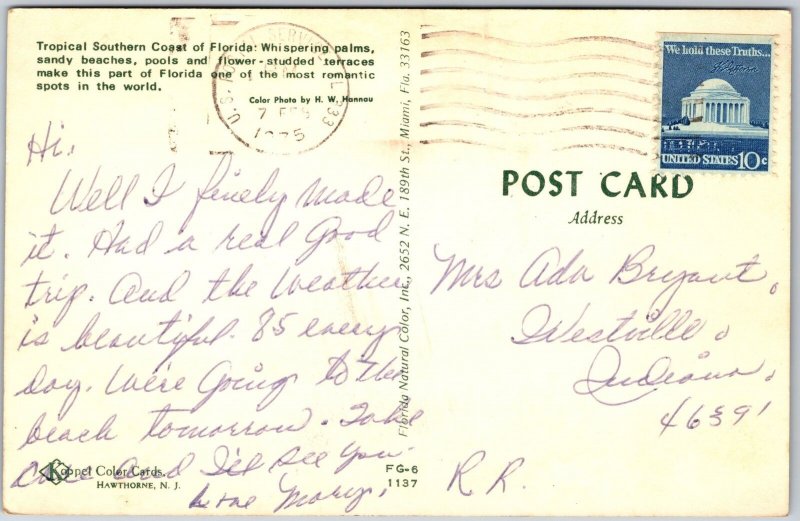 Tropical Southern Coast of Florida: Whispering palms,
sandy beaches, pools and flower-studded terraces
make this part of Florida one of the most romantic
spots in the world.
Color Photo by H. W. Hannau
7 FEB
1975
Hi,
Well I finely made
it. Had a real Good
trip. And the Weather
is beautiful. 85 every
Day. We're Going to the
beach tomorrow. Take
Care And I'll see You.
Love Mary.
Koppel Color Cards.
HAWTHORNE, N. J.
FG-6
1137
Florida Natural Color, Inc., 2652 N. E. 189th St., Miami, Fla. 33163
We hold these Truths...
UNITED STATES 10c
POST CARD
Address
Mrs Ada Bryant.
Westville.
Indiana.
46391
R.R.